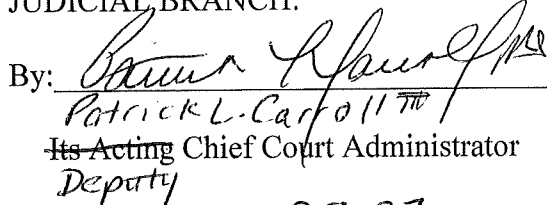 JUDICIAL BRANCH:
By:
Patrick L. Carroll III
Its Acting Chief Court Administrator
Deputy